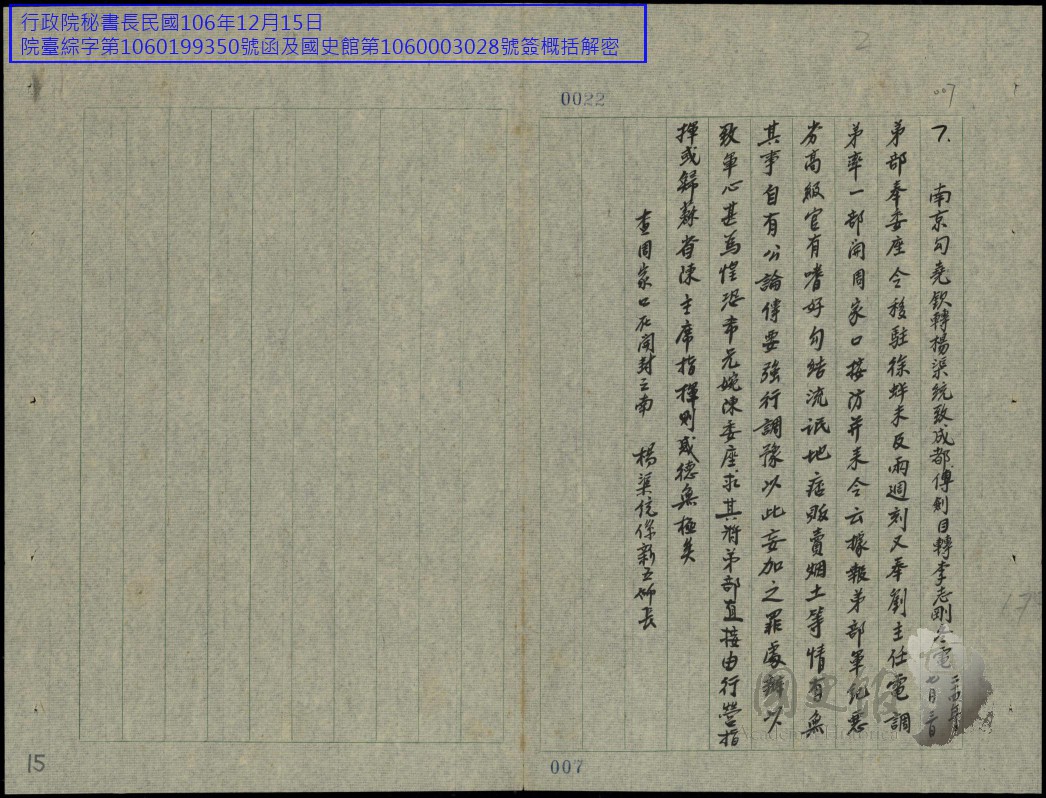 行政院秘書長民國106年12月15日
院臺綜字第1060199350號函及國史館第1060003028號簽概括解密
2
007
0022
7. 南京勾堯欽轉楊渠統致成都傅劍目轉李志剛冬電 二十四年七月三日
弟部奉委座令移駐徐蚌未及兩週刻又奉劉主任電調
弟率一部開周家口接防并來令云據報弟部軍紀惡
劣高級官有嗜好勾結流氓地痞販賣烟土等情有無
其事自有公論倘要強行調豫以此妄加之罪處辦以
致軍心甚為惶恐希兄婉陳委座求其將弟部直接由行營指
揮或歸蘇省陳主席指揮則感德無極矣
查周家口在開封之南 楊渠統係新五師長
國史館
Academia Historica
15
007